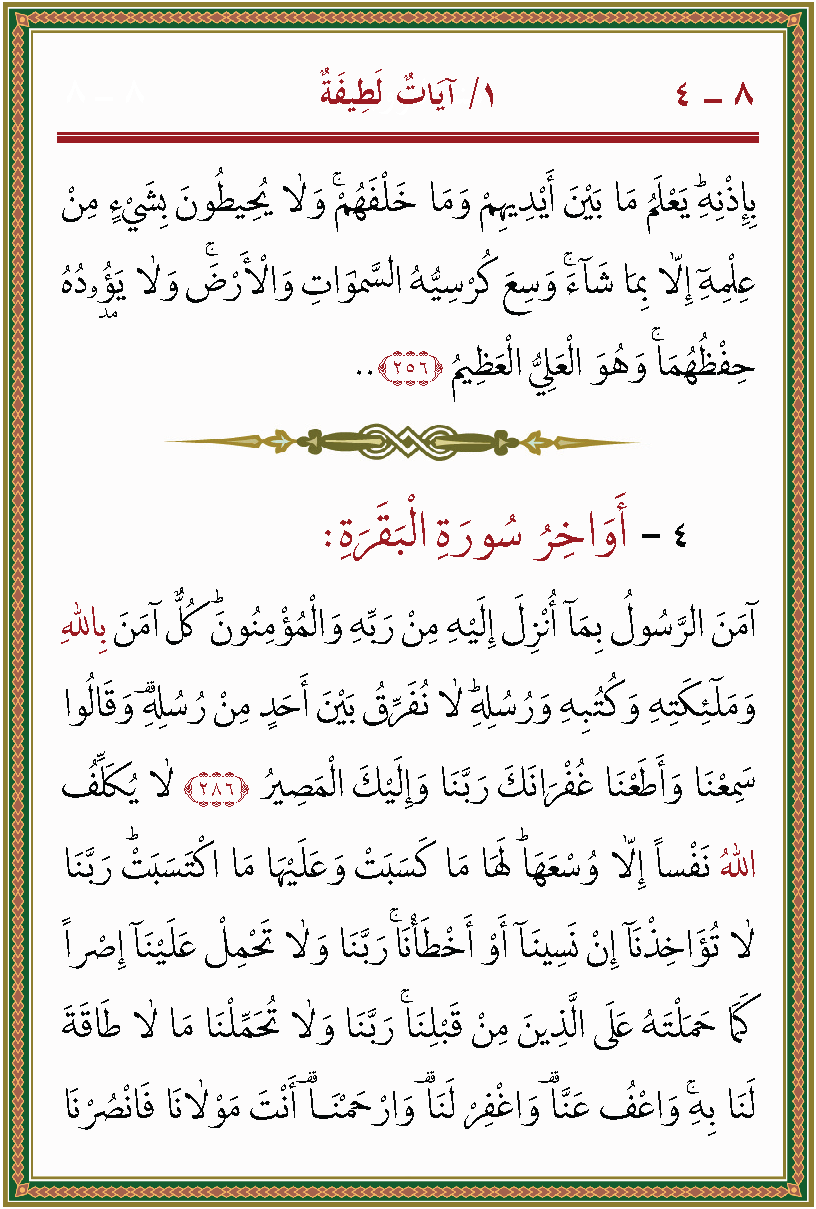 ٨ – ٤ ١/ آيَاتٌ لَطِيفَةٌ
بِإِذْنِهِۜ يَعْلَمُ مَا بَيْنَ أَيْدِيهِمْ وَمَا خَلْفَهُمْۚ وَلَا يُحِيطُونَ بِشَيْءٍ مِنْ
عِلْمِهِٓ إِلَّا بِمَا شَآءَۚ وَسِعَ كُرْسِيُّهُ السَّمٰوَاتِ وَالْأَرْضَۚ وَلَا يَؤُودُهُ
حِفْظُهُمَاۚ وَهُوَ الْعَلِيُّ الْعَظِيمُ ﴿٢٥٦﴾..
٤ – أَوَاخِرُ سُورَةِ الْبَقَرَةِ:
آمَنَ الرَّسُولُ بِمَآ أُنْزِلَ إِلَيْهِ مِنْ رَبِّهِ وَالْمُؤْمِنُونَۜ كُلٌّ آمَنَ بِاللهِ
وَمَلٰٓئِكَتِهِ وَكُتُبِهِ وَرُسُلِهِۜ لَا نُفَرِّقُ بَيْنَ أَحَدٍ مِنْ رُسُلِهِ وَقَالُوا
سَمِعْنَا وَأَطَعْنَا غُفْرَانَكَ رَبَّنَا وَإِلَيْكَ الْمَصِيرُ ﴿٢٨٦﴾ لَا يُكَلِّفُ
اللهُ نَفْساً إِلَّا وُسْعَهَاۜ لَهَا مَا كَسَبَتْ وَعَلَيْهَا مَا اكْتَسَبَتْۜ رَبَّنَا
لَا تُؤَاخِذْنَآ إِنْ نَسِينَآ أَوْ أَخْطَأْنَاۚ رَبَّنَا وَلَا تَحْمِلْ عَلَيْنَآ إِصْراً
كَمَا حَمَلْتَهُ عَلَى الَّذِينَ مِنْ قَبْلِنَاۚ رَبَّنَا وَلَا تُحَمِّلْنَا مَا لَا طَاقَةَ
لَنَا بِهِۚ وَاعْفُ عَنَّا وَاغْفِرْ لَنَا وَارْحَمْنَا أَنْتَ مَوْلَانَا فَانْصُرْنَا